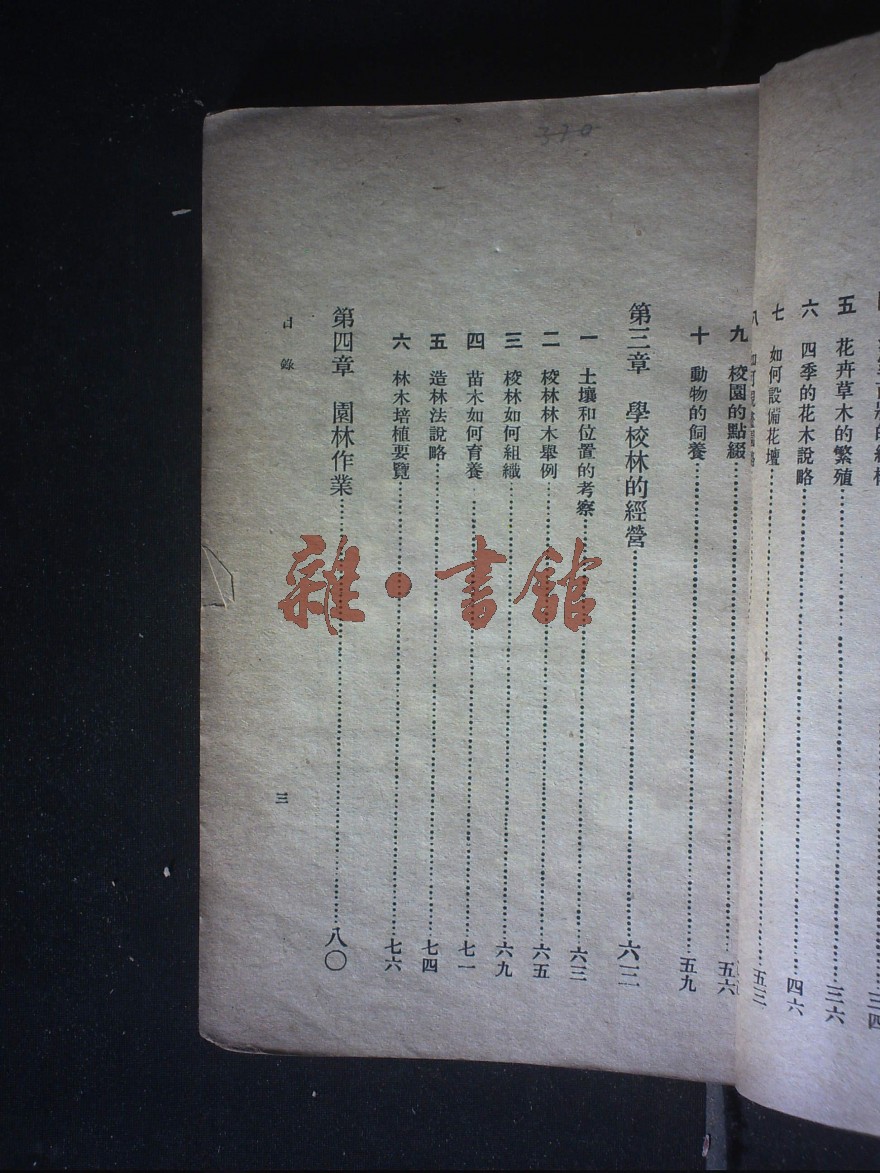 370
五 花卉草木的繁殖 三六
六 四季的花木說略 四六
七 如何設備花壇 五三
九 校園的點綴 五六
十 動物的飼養 五九
第三章 學校林的經營 六三
一 土壤和位置的考察 六三
二 校林林木舉例 六五
三 校林如何組織 六九
四 苗木如何育養 七一
五 造林法說略 七四
六 林木培植要覽 七六
第四章 園林作業 八〇
目錄
三
雜•書館